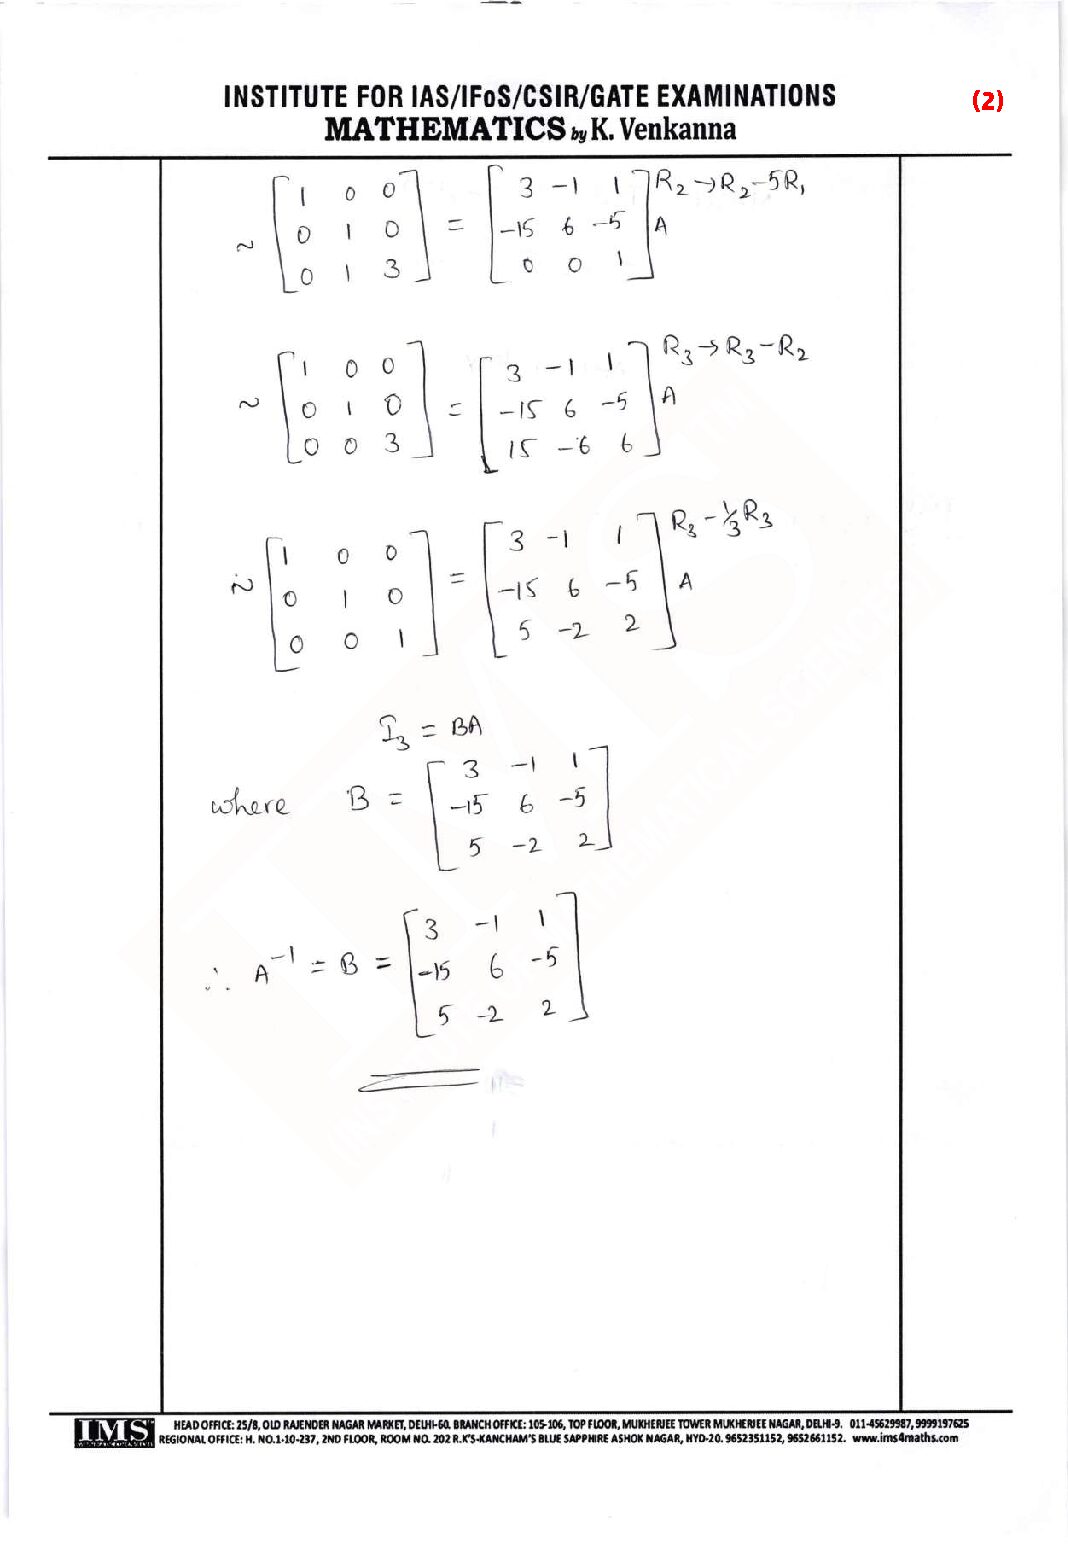 INSTITUTE FOR IAS/IFoS/CSIR/GATE EXAMINATIONS
(2)
MATHEMATICS by K. Venkanna
R2 → R2 - 5R1
~ [1 0 0; 0 1 0; 0 1 3] = [3 -1 1; -15 6 -5; 0 0 1] A
R3 → R3 - R2
~ [1 0 0; 0 1 0; 0 0 3] = [3 -1 1; -15 6 -5; 15 -6 6] A
R3 - 1/3 R3
~ [1 0 0; 0 1 0; 0 0 1] = [3 -1 1; -15 6 -5; 5 -2 2] A
I3 = BA
where B = [3 -1 1; -15 6 -5; 5 -2 2]
∴ A^-1 = B = [3 -1 1; -15 6 -5; 5 -2 2]
IMS
HEAD OFFICE: 25/8, OLD RAJENDER NAGAR MARKET, DELHI-60. BRANCH OFFICE: 105-106, TOP FLOOR, MUKHERJEE TOWER MUKHERJEE NAGAR, DELHI-9. 011-45629987, 9999197625
REGIONAL OFFICE: H. NO.1-10-237, 2ND FLOOR, ROOM NO. 202 R.K'S-KANCHAM'S BLUE SAPPHIRE ASHOK NAGAR, HYD-20. 9652351152, 9652661152. www.ims4maths.com